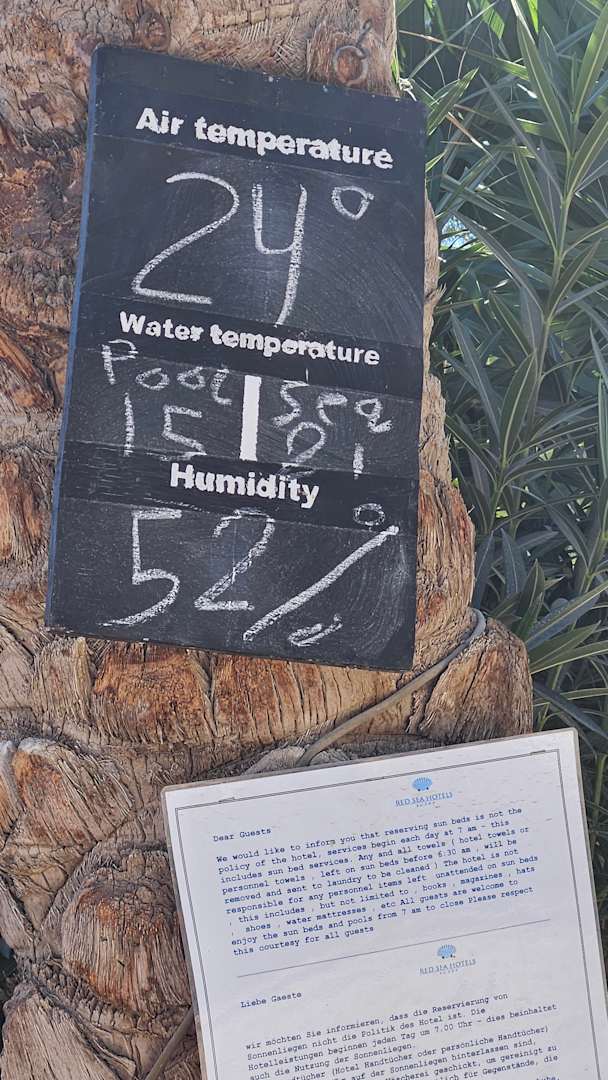 Air temperature
24°
Water temperature
Pool Sea
15 21
Humidity
52%
RED SEA HOTELS
Dear Guests
We would like to inform you that reserving sun beds is not the
policy of the hotel, services begin each day at 7 am - this
includes sun bed services. Any and all towels ( hotel towels or
personnel towels , left on sun beds before 6:30 am , will be
removed and sent to laundry to be cleaned ) The hotel is not
responsible for any personnel items left unattended on sun beds
, this includes , but not limited to , books , magazines , hats
, shoes , water mattresses , etc All guests are welcome to
enjoy the sun beds and pools from 7 am to close Please respect
this courtesy for all guests
RED SEA HOTELS
Liebe Gaeste
wir möchten Sie informieren, dass die Reservierung von
Sonnenliegen nicht die Politik des Hotel ist. Die
Hotelleistungen beginnen jeden Tag um 7.00 Uhr - dies beinhaltet
auch die Nutzung der Sonnenliegen.
(Hotel Handtücher oder persönliche Handtücher)
auf der Sonnenliegen hinterlassen sind,
geschickt, um gereinigt zu
für Gegenstände, die